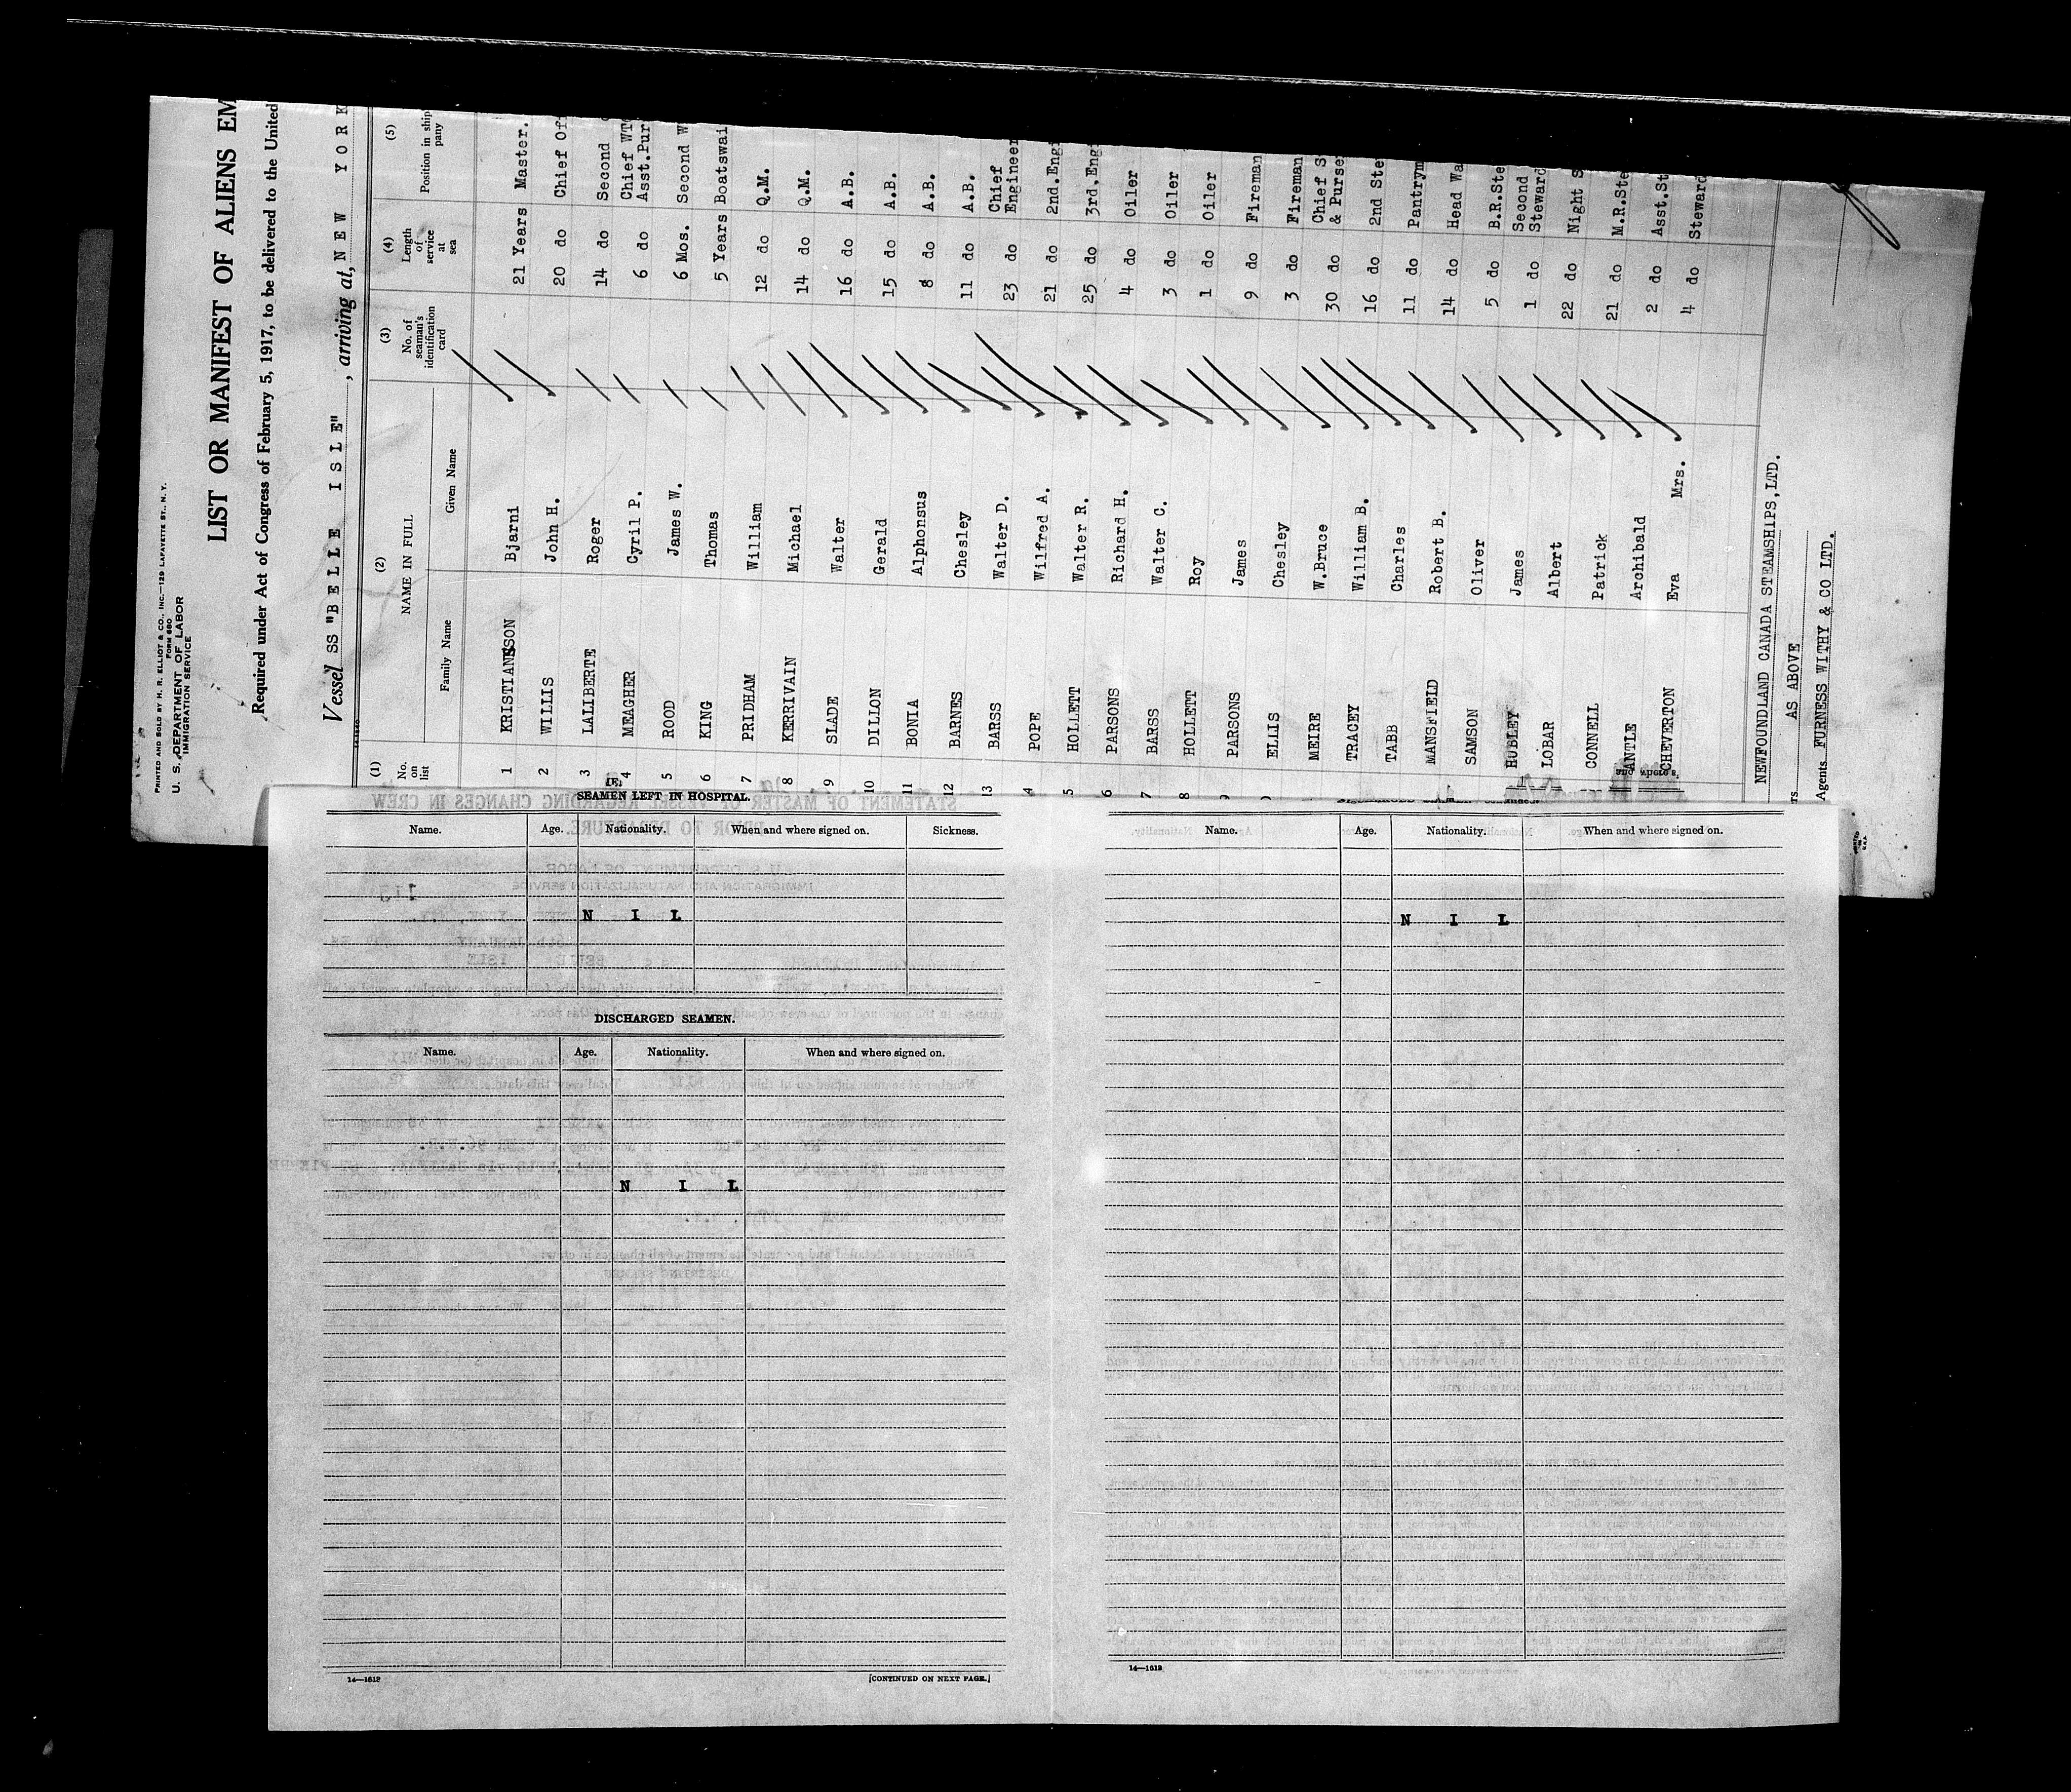 PRINTED AND SOLD BY H. R. ELLIOT & CO., INC.—129 LAFAYETTE ST., N. Y.
FORM 680
U. S. DEPARTMENT OF LABOR
IMMIGRATION SERVICE
LIST OR MANIFEST OF ALIENS EM
Required under Act of Congress of February 5, 1917, to be delivered to the United
Vessel SS "BELLE ISLE", arriving at, NEW YORK
(1) (2) (3) (4) (5)
No. on list NAME IN FULL No. of seaman's identification card Length of service at sea Position in ship pany
Family Name Given Name
1 KRISTIANSSON Bjarni 21 Years Master.
2 WILLIS John H. 20 do Chief Off
3 LALIBERTE Roger 14 do Second
4 MEAGHER Cyril P. 6 do Chief WTO Asst.Pur
5 ROOD James W. 6 Mos. Second W
6 KING Thomas 5 Years Boatswai
7 PRIDHAM William 12 do Q.M.
8 KERRIVAIN Michael 14 do Q.M.
9 SLADE Walter 16 do A.B.
10 DILLON Gerald 15 do A.B.
11 BONIA Alphonsus 8 do A.B.
12 BARNES Chesley 11 do A.B.
13 BARSS Walter D. 23 do Chief Engineer
4 POPE Wilfred A. 21 do 2nd.Engi
5 HOLLETT Walter R. 25 do 3rd.Engi
6 PARSONS Richard H. 4 do Oiler
7 BARSS Walter C. 3 do Oiler
8 HOLLETT Roy 1 do Oiler
9 PARSONS James 9 do Fireman
ELLIS Chesley 3 do Fireman
MEIRE W.Bruce 30 do Chief S & Purser
TRACEY William B. 16 do 2nd Ste
TABB Charles 11 do Pantrym
MANSFIELD Robert B. 14 do Head Wa
SAMSON Oliver 5 do B.R.Ste
HUBLEY James 1 do Second Steward
LOBAR Albert 22 do Night S
CONNELL Patrick 21 do M.R.Ste
ANTLE Archibald 2 do Asst.St
CHEVERTON Eva Mrs. 4 do Steward
NEWFOUNDLAND CANADA STEAMSHIPS,LTD.
rs. AS ABOVE
Agents. FURNESS WITHY & CO LTD.
SEAMEN LEFT IN HOSPITAL.
Name. Age. Nationality. When and where signed on. Sickness.
N I L
DISCHARGED SEAMEN.
Name. Age. Nationality. When and where signed on.
N I L
14—1612
[CONTINUED ON NEXT PAGE.]
and where s
Name. Age. Nationality. When and where signed on.
N I L
14—1612